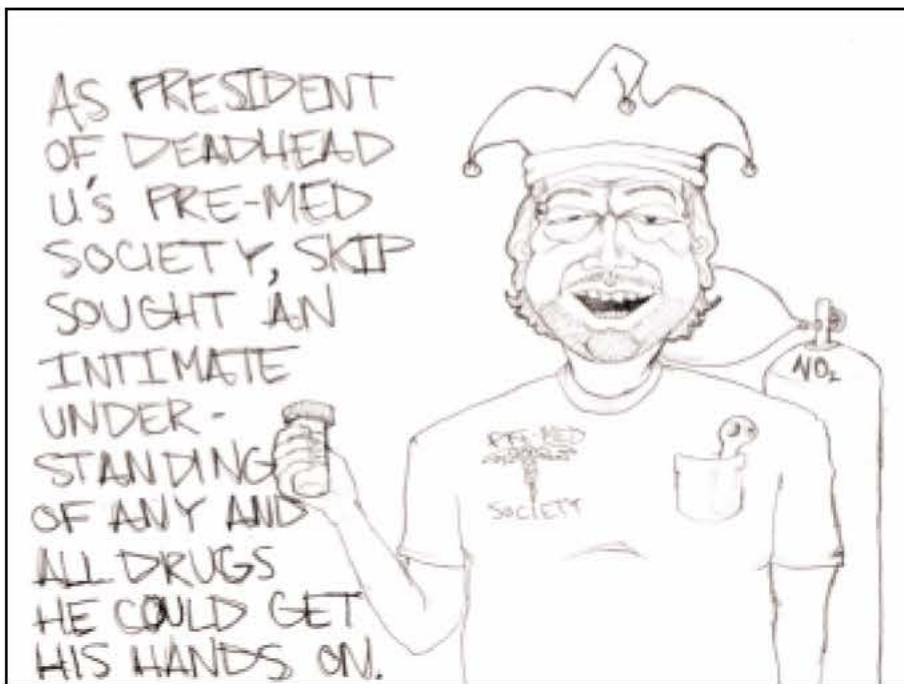 AS PRESIDENT
OF DEADHEAD
U'S PRE-MED
SOCIETY, SKIP
SOUGHT AN
INTIMATE
UNDER-
STANDING
OF ANY AND
ALL DRUGS
HE COULD GET
HIS HANDS ON.
NO₂
PRE-MED
SOCIETY